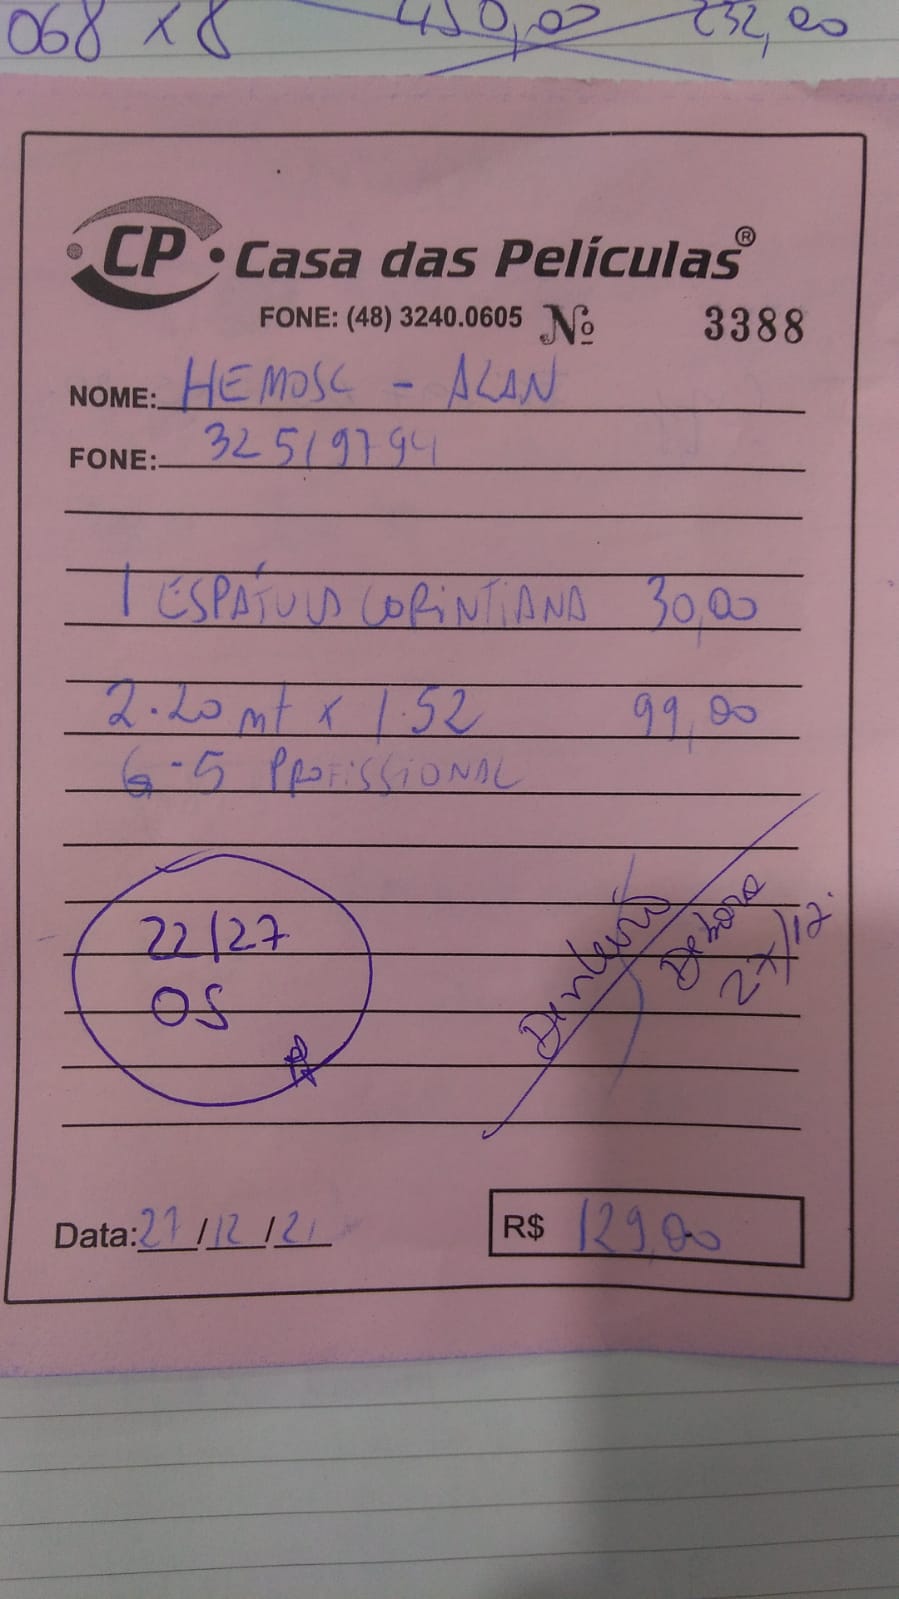 068 x 8 450,00 232,00
CP Casa das Películas®
FONE: (48) 3240.0605 Nº 3388
NOME: HEMOSC - ALAN
FONE: 32519794
1 ESPÁTULA CORINTIANA 30,00
2.20 mt x 1.52 99,00
G-5 PROFISSIONAL
22/27
OS
Dinheiro
Debora
27/12.
Data: 27/12/21 R$ 129,00